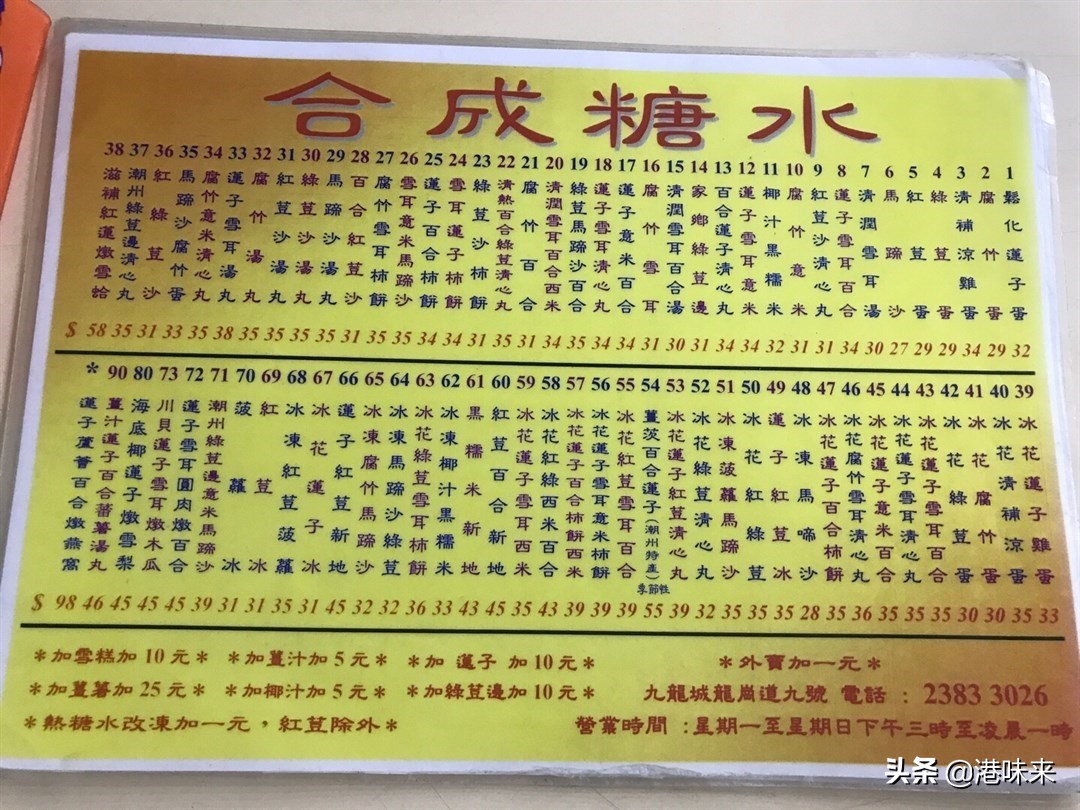 合成糖水
38 37 36 35 34 33 32 31 30 29 28 27 26 25 24 23 22 21 20 19 18 17 16 15 14 13 12 11 10 9 8 7 6 5 4 3 2 1
鬆化蓮子蛋
腐竹蛋
清補涼雞蛋
綠荳蛋
紅荳蛋
馬蹄沙
清潤雪耳湯
蓮子雪耳百合
紅荳沙清心丸
腐竹意米
椰汁黑糯米
蓮子雪耳意米
百合蓮子清心丸
家鄉綠荳邊
清潤雪耳百合湯
腐竹雪耳
蓮子意米百合
蓮子雪耳清心丸
綠荳馬蹄沙百合
清潤雪耳百合西米
腐竹百合
清熱百合綠荳清心丸
綠荳沙柿餅
雪耳蓮子柿餅
蓮子百合柿餅
雪耳意米馬蹄沙
腐竹雪耳柿餅
百合紅荳沙
馬蹄沙湯丸
綠荳沙湯丸
紅荳沙湯丸
腐竹湯丸
蓮子雪耳湯丸
腐竹意米清心丸
馬蹄沙腐竹蛋
紅綠荳沙
潮州綠荳邊清心丸
滋補紅蓮燉雪蛤
$ 58 35 31 33 35 38 35 35 35 35 31 35 35 34 34 31 35 31 34 35 34 34 31 30 31 34 34 32 31 31 34 30 27 29 29 34 29 32
* 90 80 73 72 71 70 69 68 67 66 65 64 63 62 61 60 59 58 57 56 55 54 53 52 51 50 49 48 47 46 45 44 43 42 41 40 39
冰花蓮子雞蛋
冰花清補涼
冰花腐竹蛋
冰花綠荳蛋
冰花蓮子雪耳百合
冰花蓮子雪耳清心丸
冰花蓮子意米百合
冰花腐竹雪耳清心丸
冰花蓮子百合柿餅
冰凍馬蹄沙
蓮子紅荳冰
冰花紅綠荳
冰凍菠蘿馬蹄沙
冰花綠荳清心丸
冰花蓮子紅荳清心丸
薑茨百合蓮子(潮州特產)季節性
冰花紅荳雪耳百合
冰花蓮子雪耳意米柿餅
冰花蓮子百合柿餅西米
冰花紅綠西米百合
冰花蓮子雪耳西米
紅荳百合新地
黑糯米新地
冰凍椰汁黑糯米
冰花綠荳雪耳柿餅
冰凍馬蹄沙綠荳
冰凍腐竹馬蹄沙
蓮子紅荳新地
冰花蓮子冰
冰凍紅荳菠蘿
紅荳冰
菠蘿冰
潮州綠荳邊意米馬蹄沙
蓮子雪耳圓肉燉百合
川貝蓮子雪耳燉木瓜
海底椰蓮子燉雪梨
薑汁蓮子百合蕃薯湯丸
蓮子蘆薈百合燉燕窩
$ 98 46 45 45 45 39 31 31 35 31 45 32 32 36 33 43 45 35 43 39 39 39 55 39 32 35 35 28 35 36 35 35 35 30 30 35 33
*加雪糕加 10 元* *加薑汁加 5 元* *加 蓮子 加 10 元* *外賣加一元*
*加薑薯加 25 元* *加椰汁加 5 元* *加綠荳邊加 10 元* 九龍城龍崗道九號 電話 : 2383 3026
*熱糖水改凍加一元,紅荳除外* 營業時間 :星期一至星期日下午三時至凌晨一時
头条 @港味来